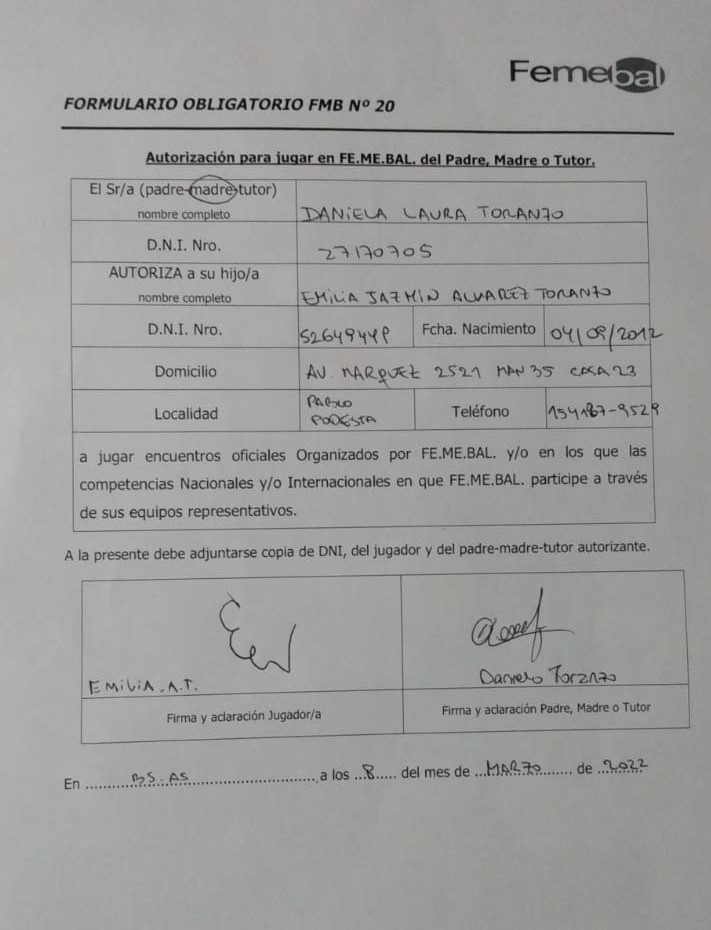 Femebal
FORMULARIO OBLIGATORIO FMB Nº 20
Autorización para jugar en FE.ME.BAL. del Padre, Madre o Tutor.
El Sr/a (padre-madre-tutor)
nombre completo
DANIELA LAURA TORANZO
D.N.I. Nro.
27170705
AUTORIZA a su hijo/a
nombre completo
EMILIA JAZMIN ALVAREZ TORANZO
D.N.I. Nro.
Fcha. Nacimiento
04/09/2012
Domicilio
AV. MARQUEZ 2521 MAN 35 CASA 23
Localidad
PABLO
PODESTA
Teléfono
a jugar encuentros oficiales Organizados por FE.ME.BAL. y/o en los que las
competencias Nacionales y/o Internacionales en que FE.ME.BAL. participe a través
de sus equipos representativos.
A la presente debe adjuntarse copia de DNI, del jugador y del padre-madre-tutor autorizante.
EMILIA.A.T.
Daniela Toranzo
Firma y aclaración Jugador/a
Firma y aclaración Padre, Madre o Tutor
En BS.AS a los 8 del mes de MARZO de 2022